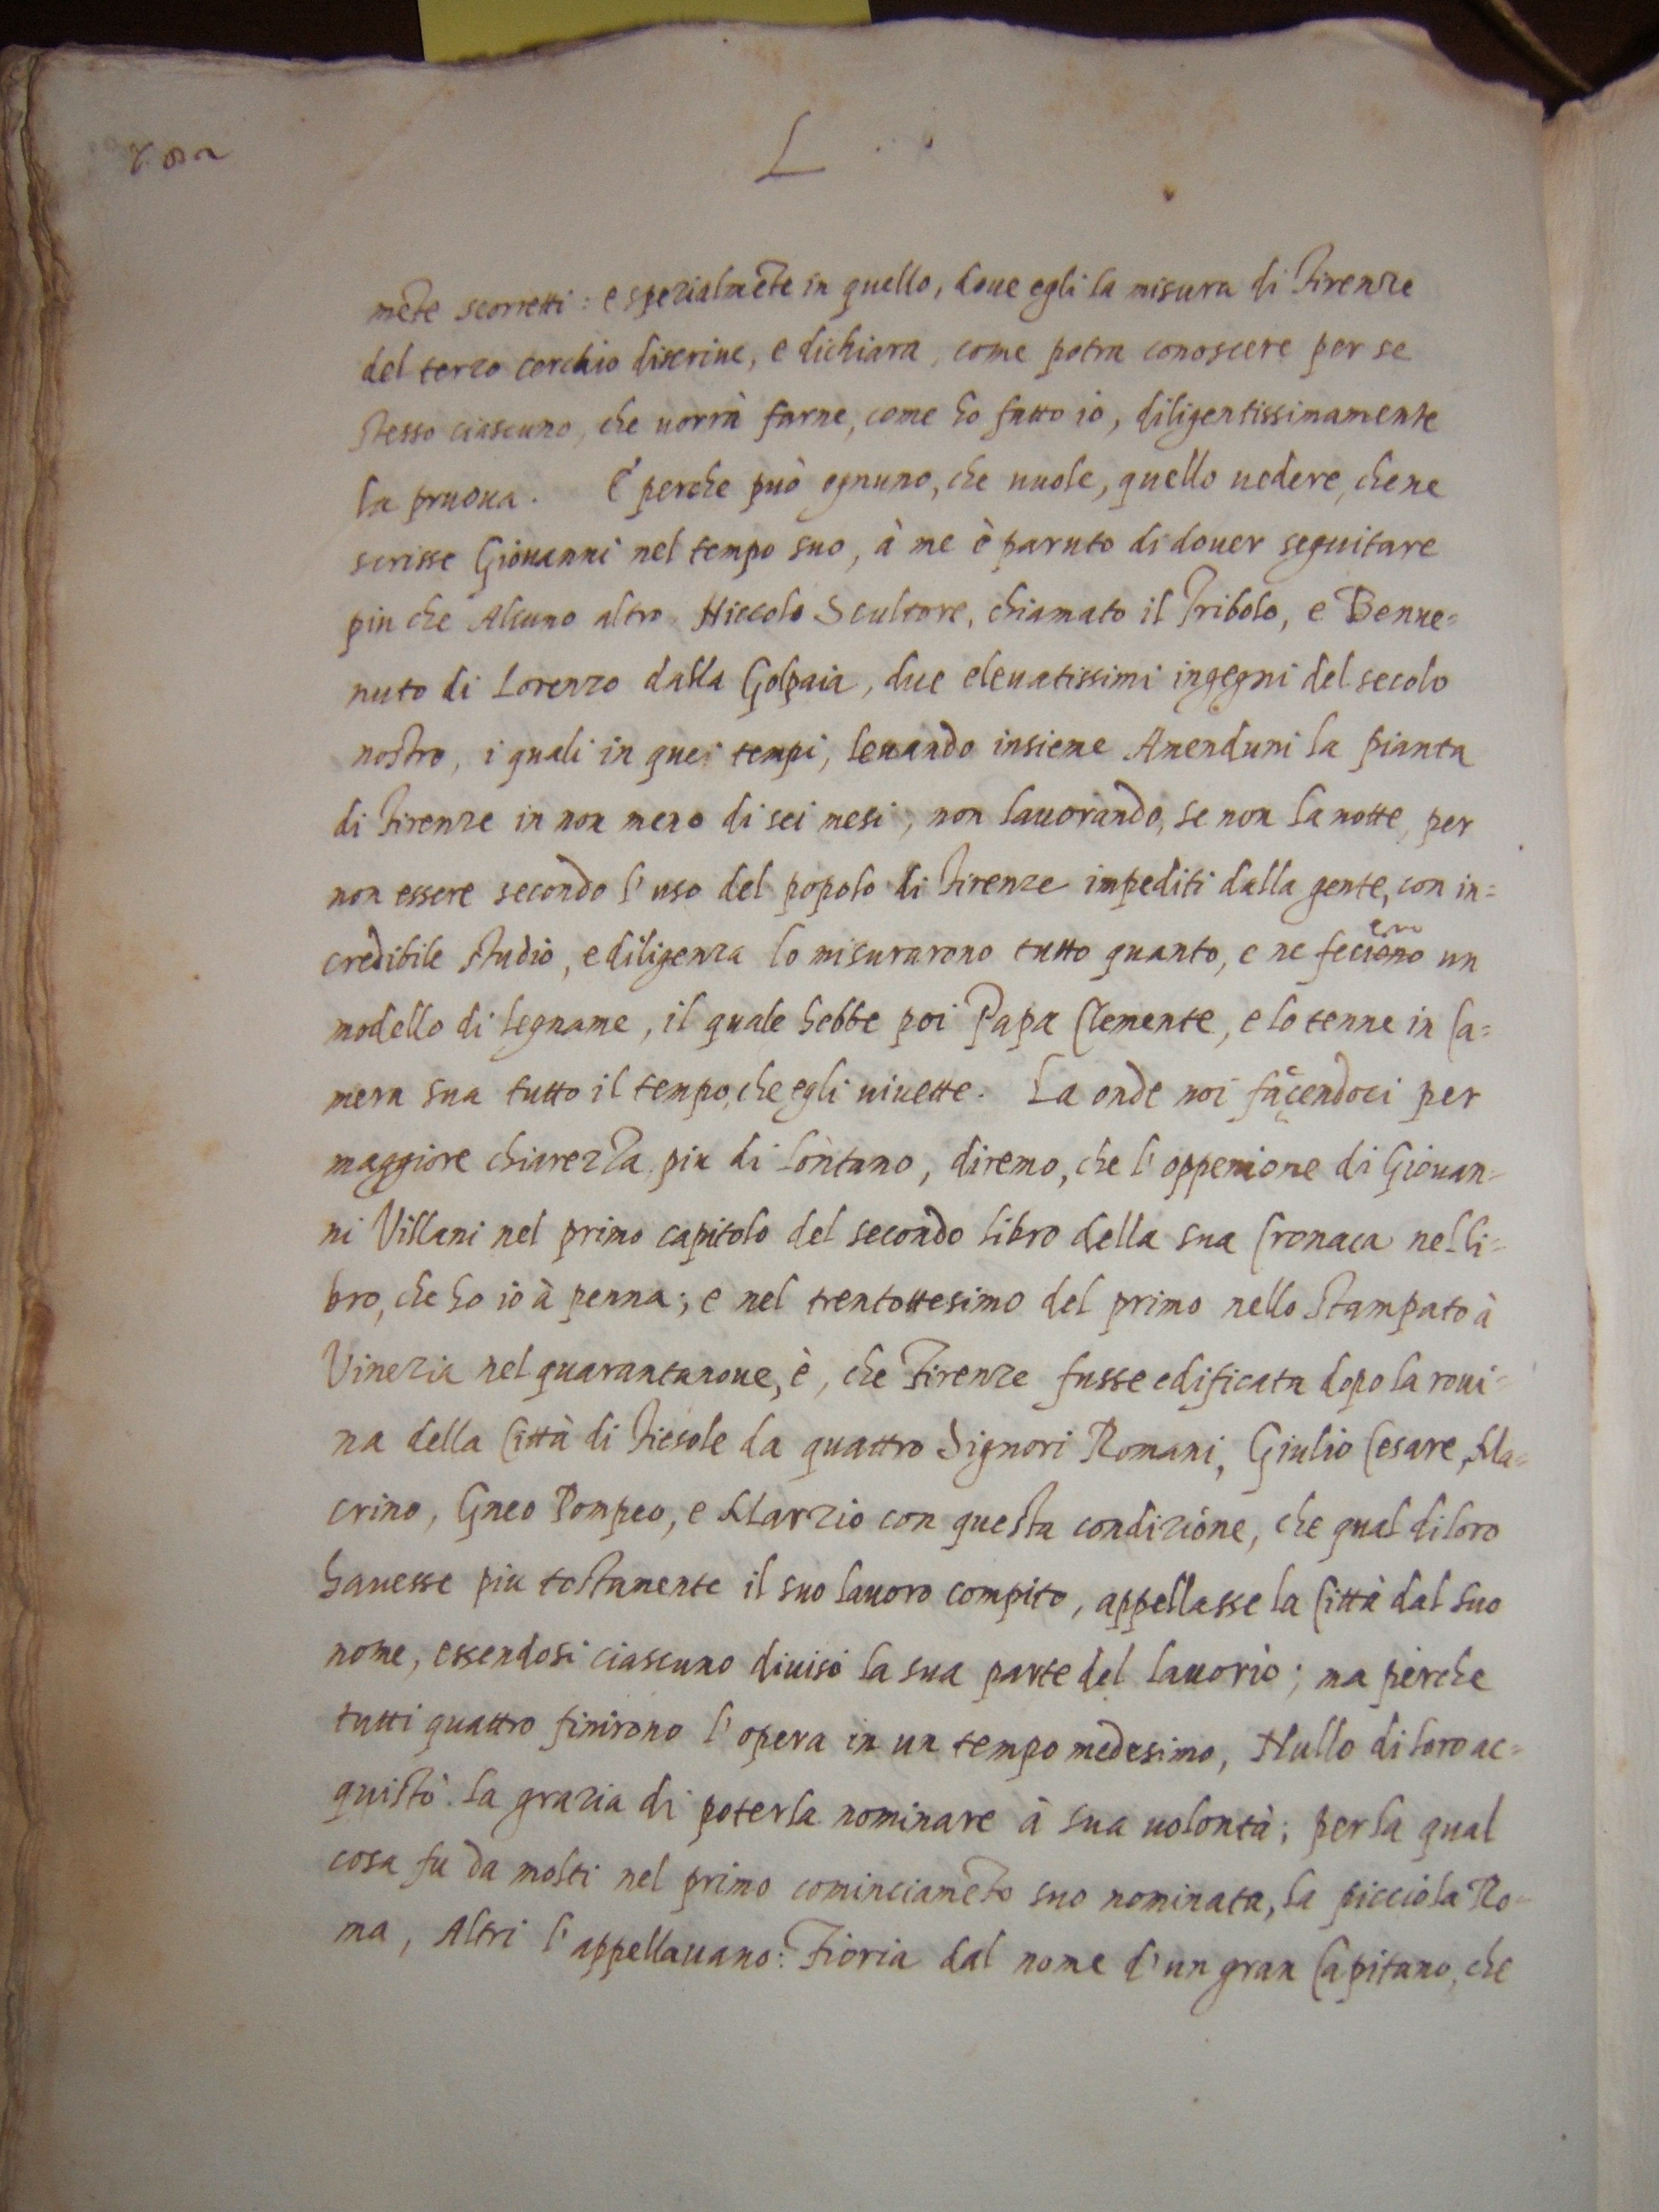 L
mẽte scorretti: e spezialmẽte in quello, doue egli la misura di Firenze
del terzo cerchio discriue, e dichiara, come potra conoscere per se
stesso ciascuno, che uorrà farne, come ho fatto io, diligentissimamente
la pruoua. E perche può ognuno, che uuole, quello uedere, che ne
scrisse Giouanni nel tempo suo, à me è paruto di douer seguitare
piu che Alcuno altro Niccolo Scultore, chiamato il Tribolo, e Benue=
nuto di Lorenzo dalla Golpaia, due eleuatissimi ingegni del secolo
nostro, i quali in quei tempi, leuando insieme Amenduni la pianta
di Firenze in non meno di sei mesi, non lauorando, se non la notte, per
non essere secondo l'uso del popolo di Firenze impediti dalla gente, con in=
credibile studio, e diligenza lo misurarono tutto quanto, e ne feciono un
modello di legname, il quale hebbe poi Papa Clemente, e lo tenne in Ca=
mera sua tutto il tempo, che egli uiuette. La onde noi facendoci per
maggiore chiarezza piu di lontano, diremo, che l'oppenione di Giouan=
ni Villani nel primo capitolo del secondo libro della sua Cronaca nel li=
bro, che ho io à penna; e nel trentottesimo del primo nello Stampato à
Vinezia nel quarantanoue, è, che Firenze fusse edificata dopo la roui=
na della Città di Fiesole da quattro Signori Romani, Giulio Cesare, Ma=
crino, Gneo Pompeo, e Marzio con questa condizione, che qual di loro
hauesse piu tostamente il suo lauoro compito, appellasse la Città dal suo
nome, essendosi ciascuno diuiso la sua parte del lauorio; ma perche
tutti quattro finirono l'opera in un tempo medesimo, Nullo di loro ac=
quistò la grazia di poterla nominare à sua uolontà; per la qual
cosa fu da molti nel primo cominciamẽto suo nominata, la picciola Ro=
ma, Altri l'appellauano: Fioria dal nome d'un gran Capitano, che